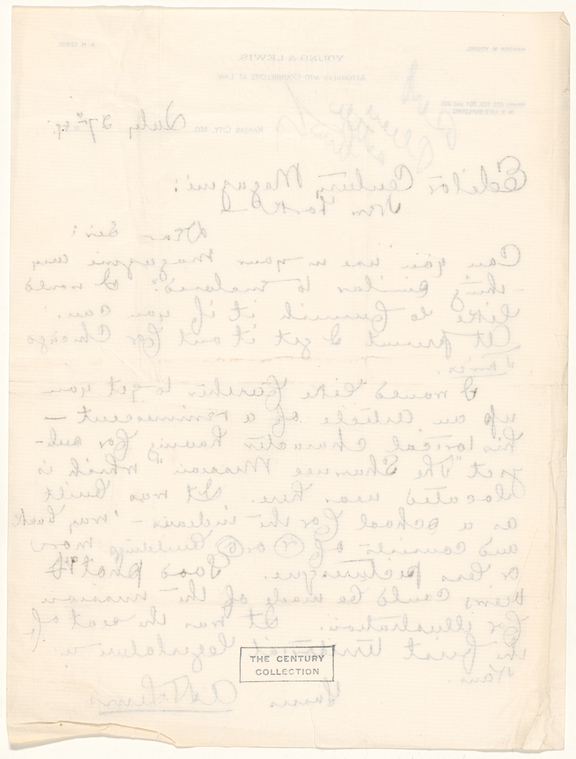 YOUNG & LEWIS,
Attorneys and Counsellors at Law
Kansas City, Mo. July 27th
Editor Century Magazine:
New York
Dear Sir:
Can you use in your Magazine any
-thing similar to inclosed? I would
like to furnish it if you can.
At present I get it out for Chicago
Times.
I would like further to get you
up an article of a reminiscent -
historical character having for sub-
ject "The Shawnee Mission" which is
located near here. It was built
as a school for the indians - way back
and consists of 4 or 5 buildings more
or less picturesque. Good photo
views could be made of the mission
for illustration. It was the seat of
the first territorial legislature in
Kans.
Yours
THE CENTURY
COLLECTION